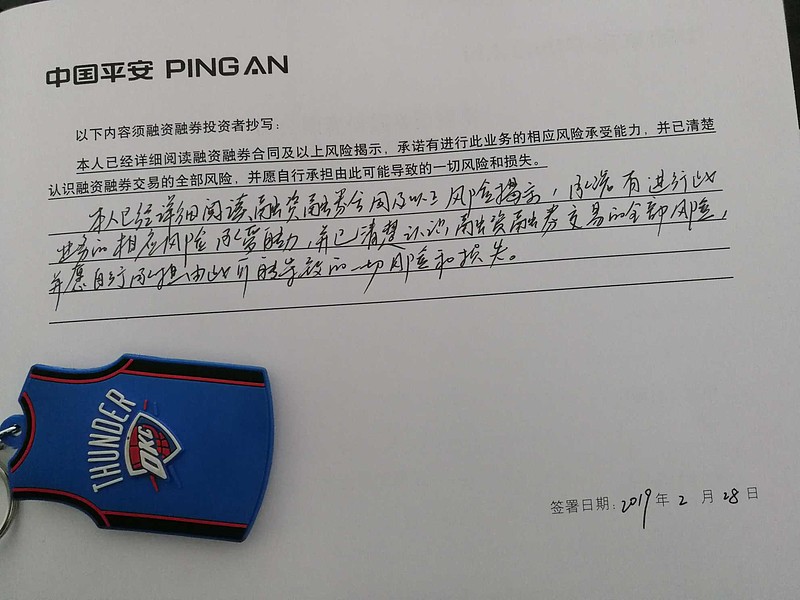 中国平安 PING AN
以下内容须融资融券投资者抄写：
本人已经详细阅读融资融券合同及以上风险揭示，承诺有进行此业务的相应风险承受能力，并已清楚
认识融资融券交易的全部风险，并愿自行承担由此可能导致的一切风险和损失。
本人已经详细阅读融资融券合同及以上风险揭示，承诺有进行此
业务的相应风险承受能力，并已清楚认识融资融券交易的全部风险，
并愿自行承担由此可能导致的一切风险和损失。
THUNDER
OKC
签署日期：2019年2月28日